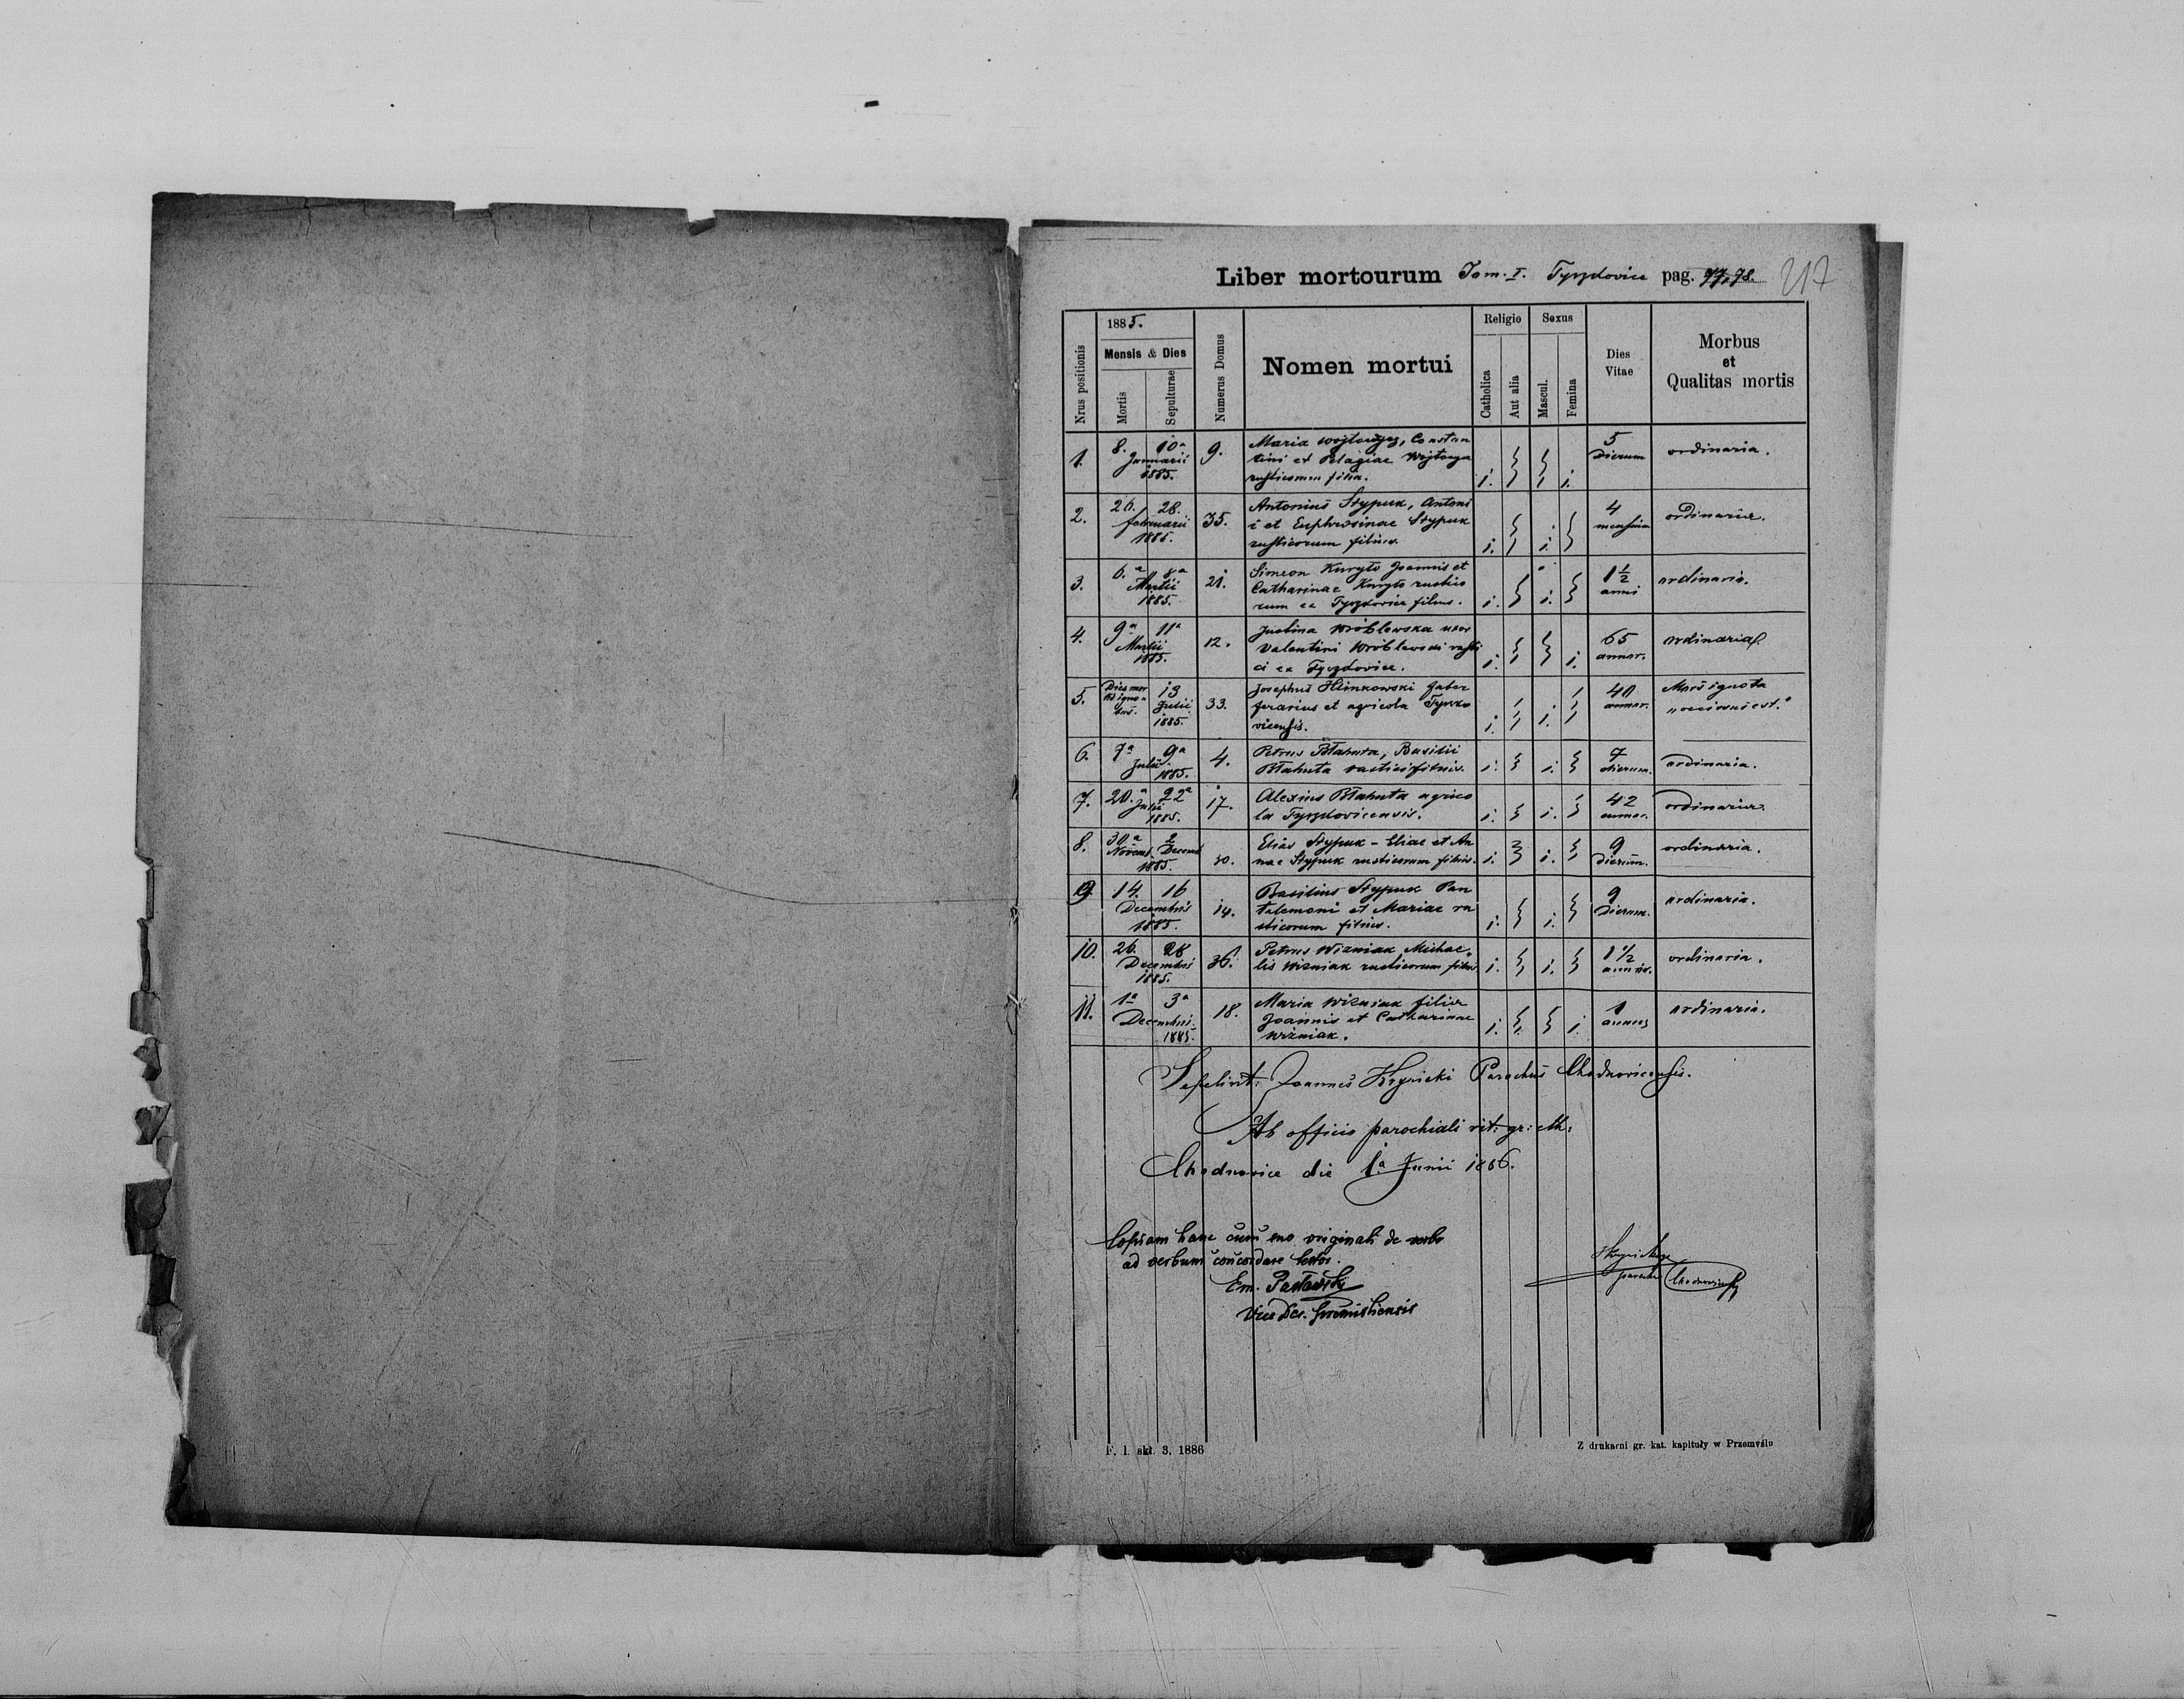 Liber mortourum Tom. I. Tyszkovice pag. 77, 78. 217
Nrus positionis
1885.
Mensis & Dies
Mortis
Sepulturae
Numerus Domus
Nomen mortui
Religio
Catholica
Aut alia
Sexus
Mascul.
Femina
Dies
Vitae
Morbus
et
Qualitas mortis
1. 8. 10a 9. Maria Constan 5 ordinaria.
Januarii tini et Pelagiae dierum
1885. rusticorum filia. i. i.
2. 26. 28. 35. Antonius Stypuk, Antoni 4 ordinaria.
februarii i et Euphrosinae Stypuk mensium
1885. rusticorum filius. i. i.
3. 6.a 8a 21. Simeon Kuryto Joannis et 1 1/2 ordinaria.
Martii Catharinae Kuryto rustico anni
1885. rum ex filius. i. i.
4. 9a 11a 12. Justina Wróblewska uxor 65 ordinaria.
Martii Valentini Wróblewski rusti annor.
1885. ci ex i. i.
5. Dies mor 13 33. Josephus Himkowski faber 40 Mors ignota
tis igno Julii ferarius et agricola annor. „occisus est."
tus. 1885. vicensis. i. i.
6. 7a 9a 4. Petrus Błahuta, Basilii 7 ordinaria.
Julii 1885. Błahuta rustici filius. i. i. dierum.
7. 20.a 22a 17. Alexius Błahuta agrico 42 ordinaria
Julii 1885. la i. i. annor.
8. 30.a 2 30. Elias Stypuk - Eliae et An 9 ordinaria.
Novemb. Decemb nae Stypuk rusticorum filius. i. i. dierum.
1885.
9. 14. 16 14. Basilius Stypuk Pan 9 ordinaria.
Decembris talemoni et Mariae ru dierum.
1885. sticorum filius. i. i.
10. 26. 28 36. Petrus Wizniak Michae 1 1/2 ordinaria.
Decembris lis Wizniak rusticorum filius i. i. annor.
1885.
11. 1a 3a 18. Maria Wizniak filia 1 ordinaria.
Decembris Joannis et Catharinae annus
1885. Wizniak. i. i.
Sepelivit: Joannes Hrynicki Parochus Chodnovicensis.
Ab officio parochiali rit: gr: cth:
Chodnovice die 1a Junii 1886.
Copiam hanc cum suo originali de verbo
ad verbum concordare testor.
Em.
Vice Dec.
F. l. skt. 3. 1886
Z drukarni gr. kat. kapituły w Przemyślu